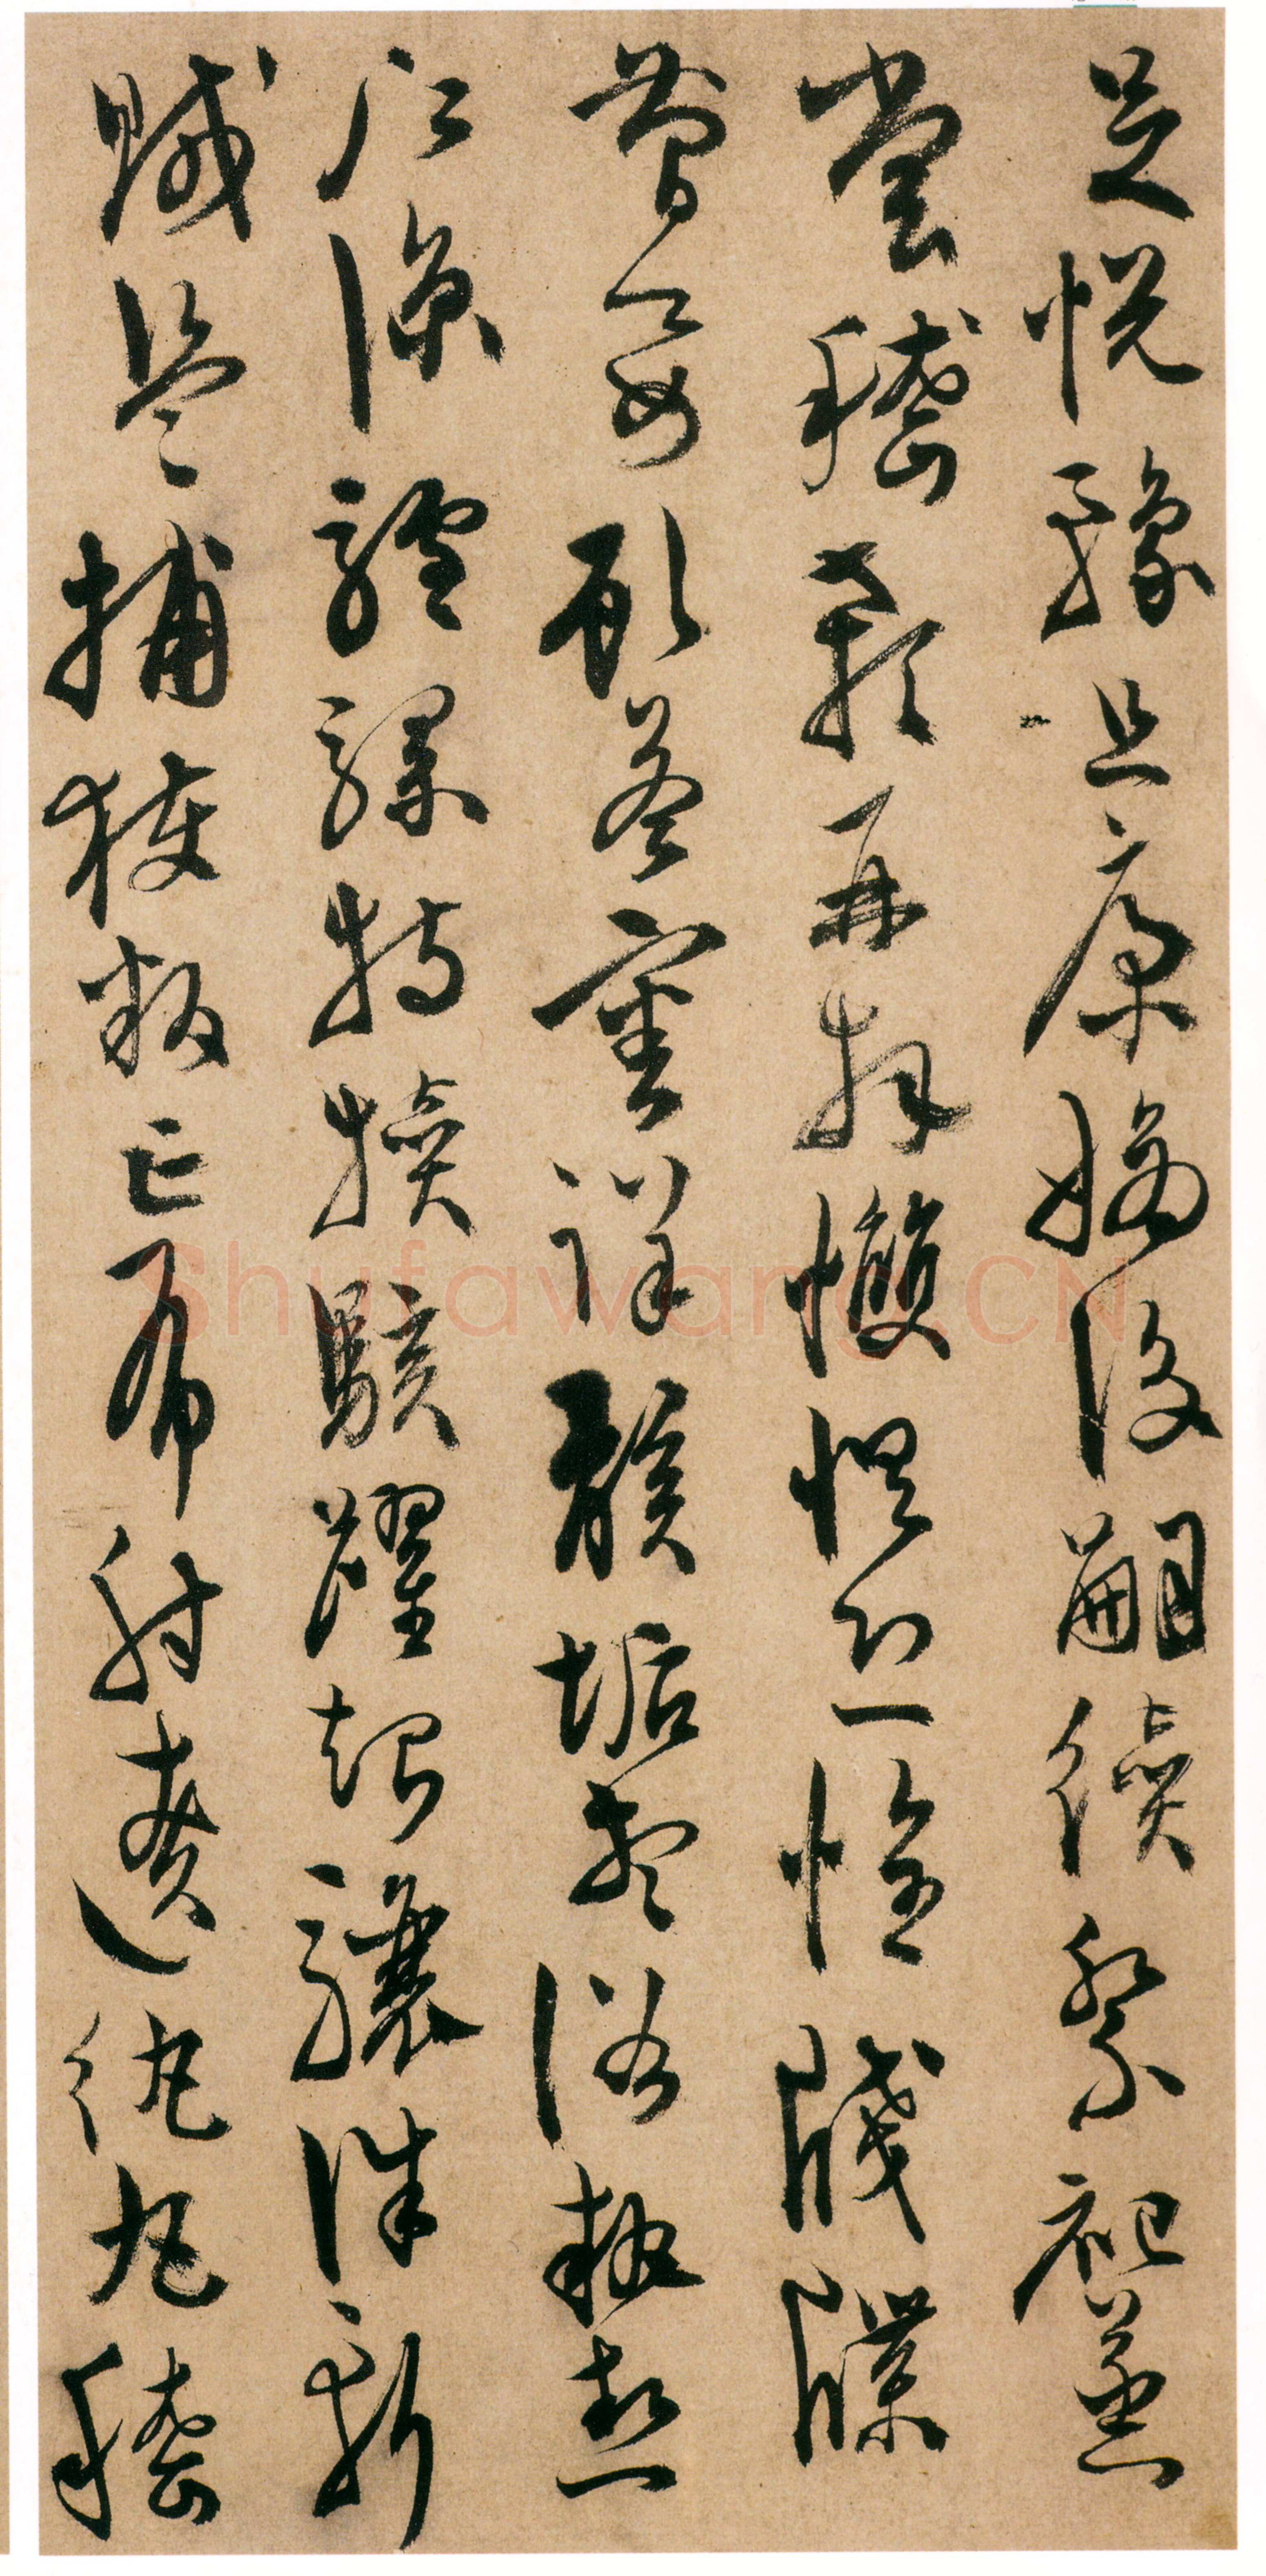 足悦豫且康嫡後嗣續祭祀蒸
嘗稽顙再拜懼恐惶牋牒
簡要顧答審詳骸垢想浴執熱
願涼驢騾特犢駭躍超驤誅斬
賊盜捕獲叛亡布射遼紈丸嵇
Shufawang.CN